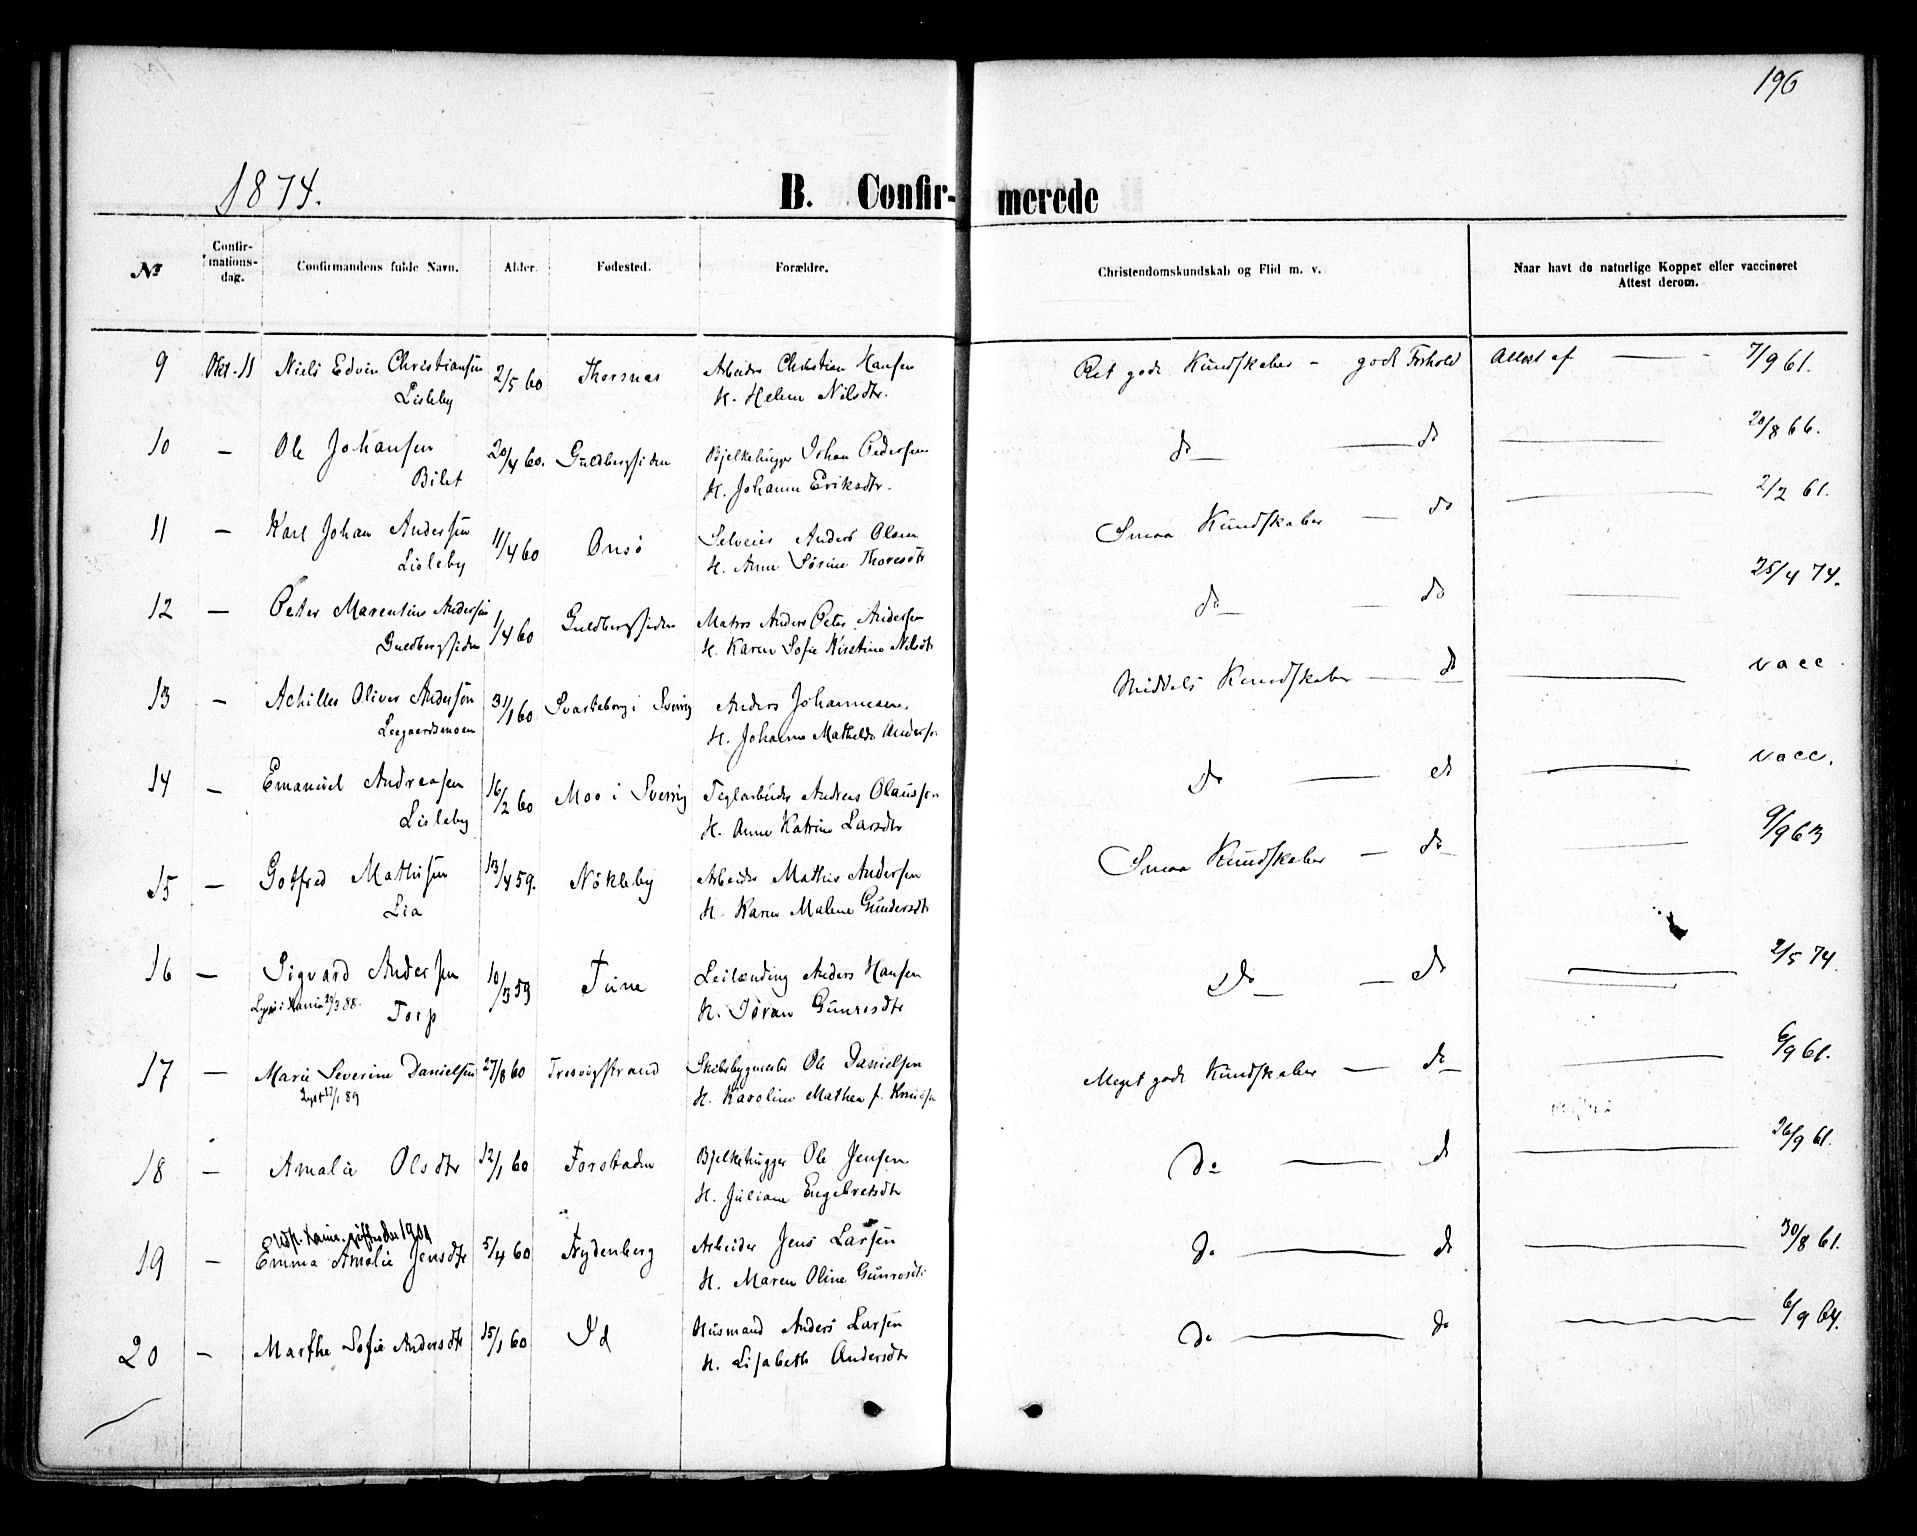 196
1874.
B. Confir- merede
No
Confir-
mations-
dag.
Confirmandens fulde Navn.
Alder.
Fødested.
Forældre.
Christendomskundskab og Flid m. v.
Naar havt de naturlige Kopper eller vaccineret
Attest derom.
9 Okt. 11 Niels Edvin Christiansen 2/5 60 Thorsnes Arbeider Christian Hansen Ret gode Kundskaber - godt Forhold Attest af — 7/9 61.
Lisleby H. Helene Nilsdtr.
10 — Ole Johansen 20/4 60. Guldbergsiden Bjelkehugger Johan Pedersen do — do — 20/8 66.
Bilet H. Johanne Eriksdtr.
11 — Karl Johan Andersen 11/4 60 Onsö Selveier Anders Olsen Smaa Kundskaber — do — 2/2 61.
Lisleby H. Anne Sörine Thoresdtr
12 — Peter Marentius Andersen 1/4 60 Guldbergsiden Matros Anders Peter Andersen do — do — 25/4 74.
Guldbergsiden H. Karen Sofie Kirstine Nilsdtr
13 — Achilles Oliver Andersen 31/1 60 Svarteborg i Sverrig Anders Johannesen Middels Kundskaber — do — vacc.
Leegaardsmoen H. Johanna Mathilda Anders
14 — Emanuel Andreasen 16/2 60 Moo i Sverrig Teglarbeider Andreas Olaussen Do — do — vacc.
Lisleby H. Anne Katrine Larsdtr
15 — Gotfred Mathisen 13/4 59. Nökleby Arbeider Mathis Andersen Smaa Kundskaber — do — 9/9 63
Lia H. Karen Malene Gundersdtr
16 — Sigvard Andersen 10/3 59 Tune Leilænding Anders Hansen Do — do — 2/5 74.
Torp H. Jöran Gunrosdtr
17 — Marie Severine Danielsen 27/8 60 Tresvigstrand Skibsbygmester Ole Danielsen Meget gode Kundskaber — do — 6/9 61.
Lyst 17/1 89 H. Karoline Mathea f. Knudsen
18 — Amalie Olsdtr 12/1 60 Forstaden Bjelkehugger Ole Jensen Do — do — 26/9 61.
H. Juliane Engebretsdtr
19 — Emma Amalie Jensdtr 5/4 60 Nydenberg Arbeider Jens Larsen do — do — 30/8 61.
H. Maren Oline Gunrosdtr
20 — Marthe Sofie Andersdtr 15/1 60 Id Husmand Anders Larsen do — do — 6/9 64.
H. Lisabeth Andersdtr